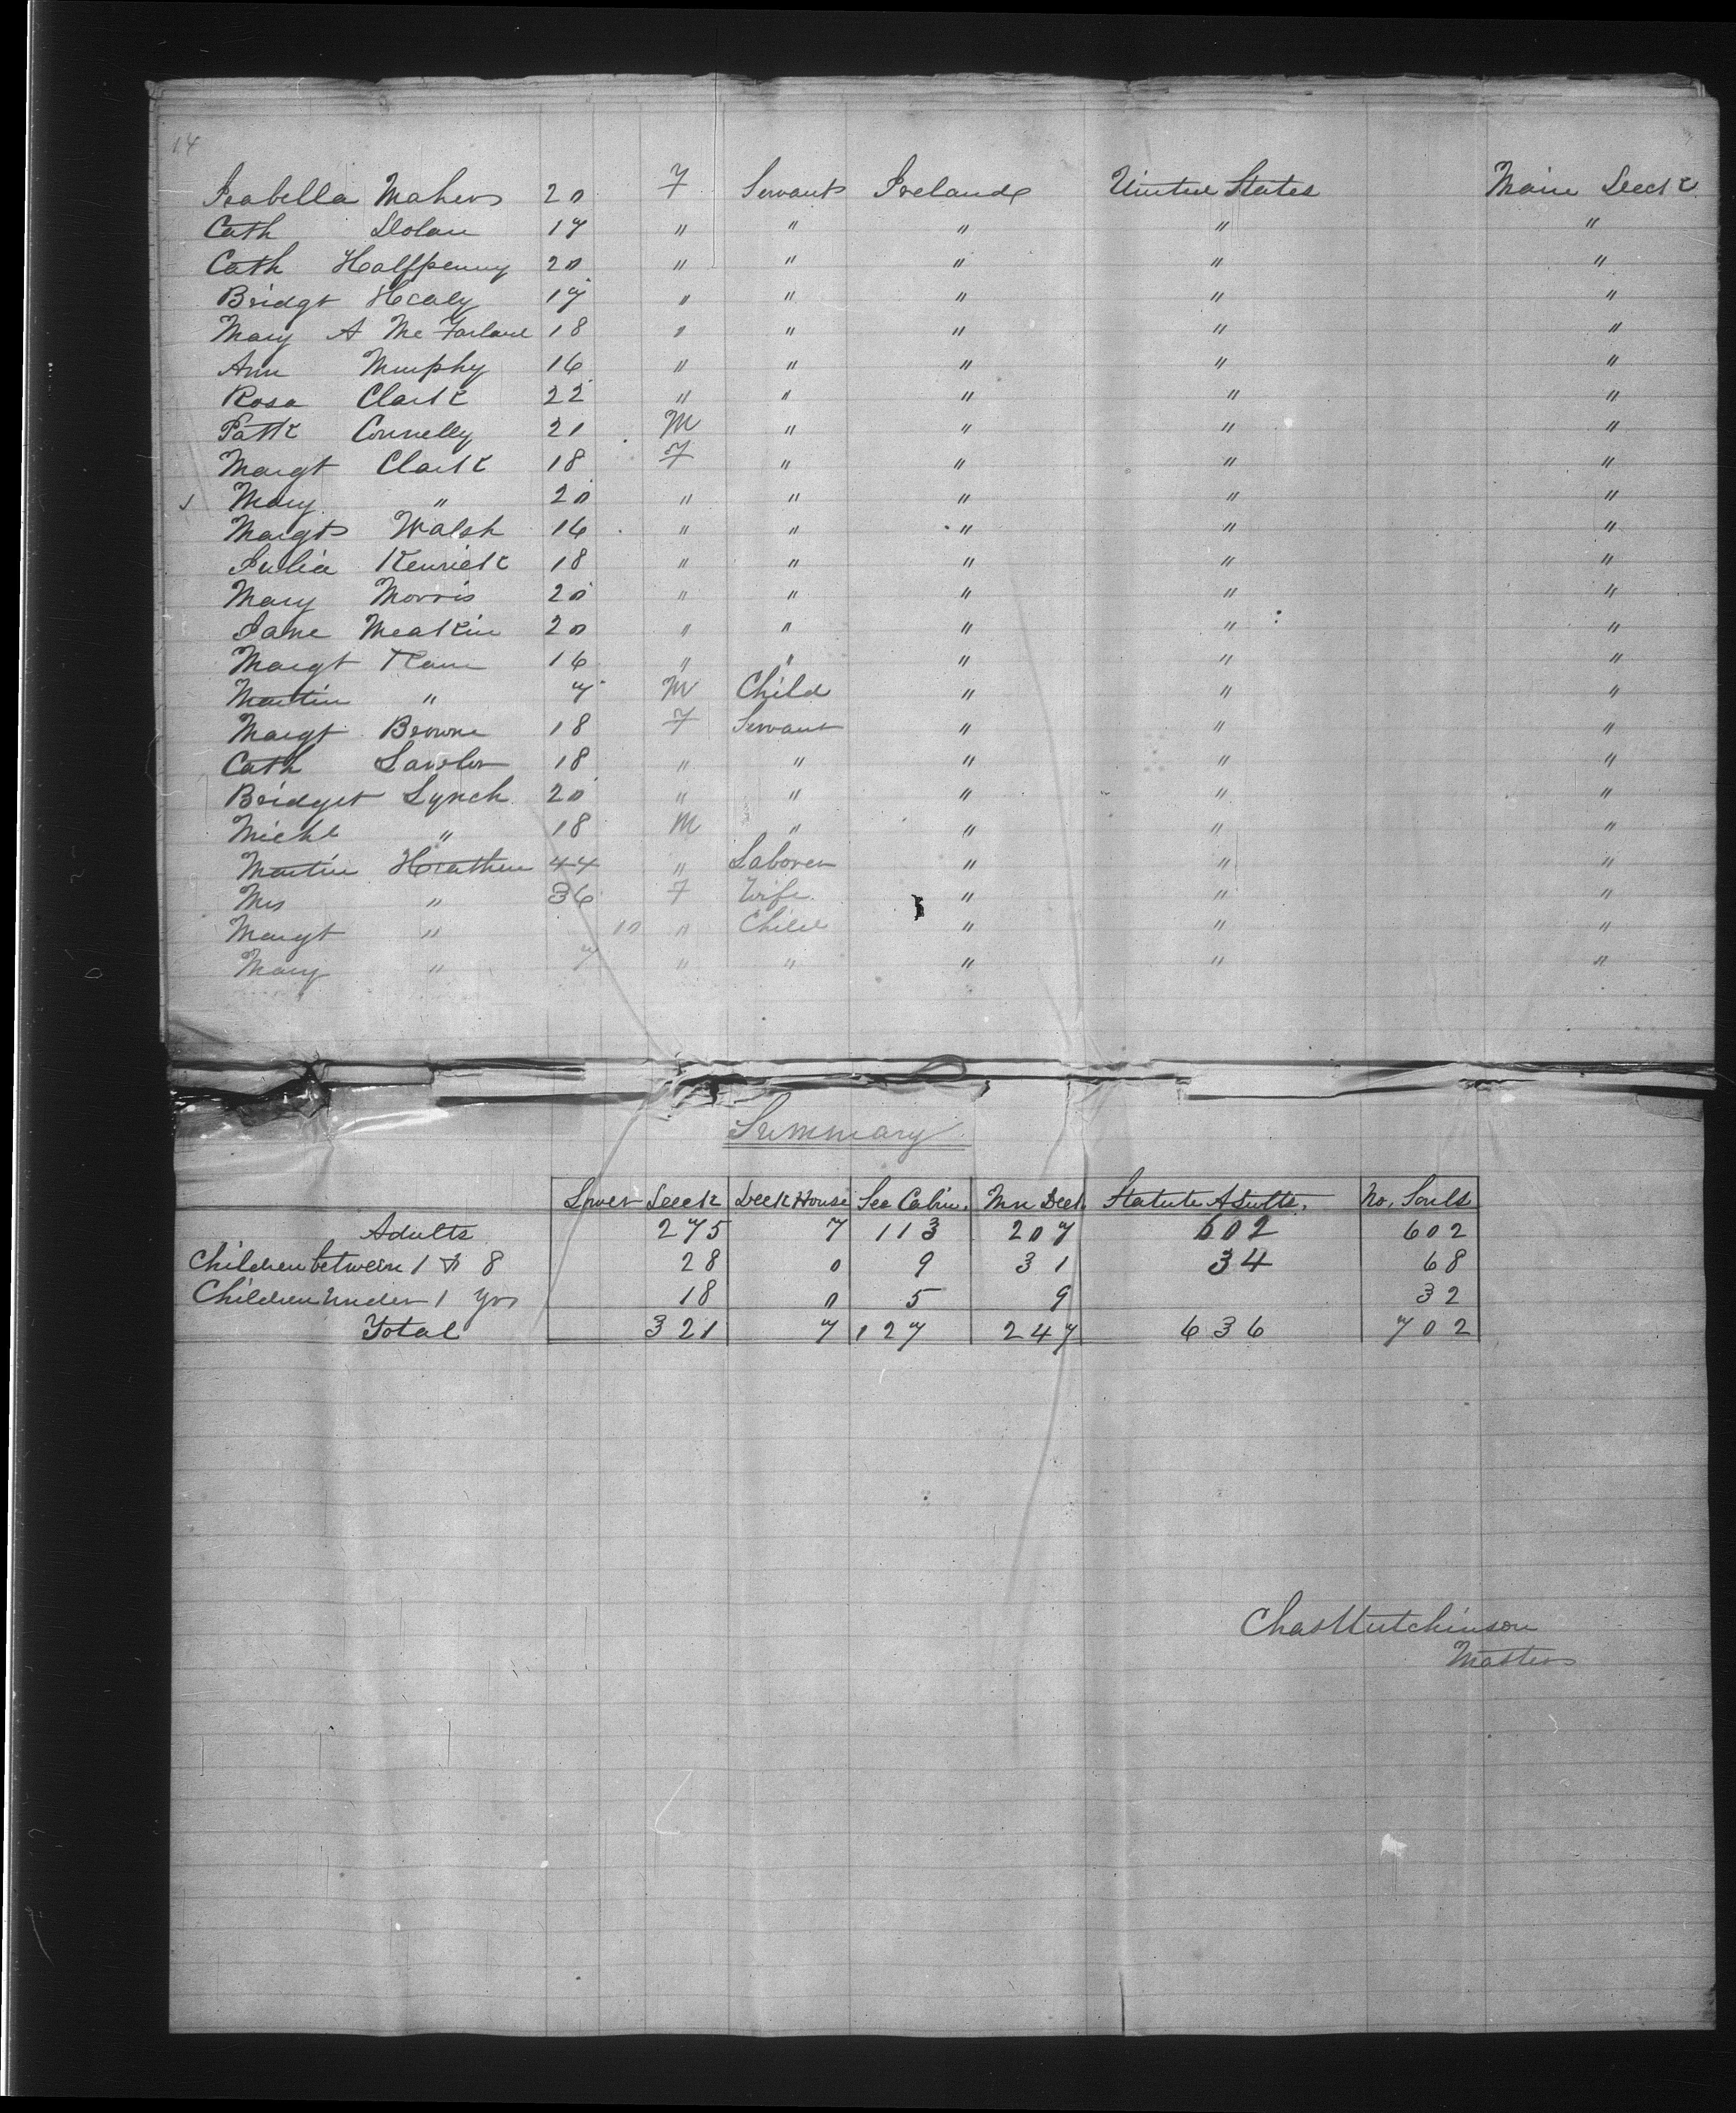 14
Isabella Mahers 20 F Servant Ireland United States Main Deck
Cath Dolan 17 " " " " "
Cath Halfpenny 20 " " " " "
Bridgt Healy 17 " " " " "
Mary A Mc Farlane 18 " " " " "
Ann Murphy 16 " " " " "
Rosa Clark 22 " " " " "
Patk Connelly 21 M " " " "
Margt Clark 18 F " " " "
Mary " 20 " " " " "
Margt Walsh 16 " " " " "
Julia Kenrick 18 " " " " "
Mary Morris 20 " " " " "
Jane Meakin 20 " " " " "
Margt 16 " " " " "
Martin " 7 M Child " " "
Margt Browne 18 F Servant " " "
Cath Lawlor 18 " " " " "
Bridget Lynch 20 " " " " "
Michl " 18 M " " " "
Martin 44 " Laborer " " "
Mrs " 36 F Wife " " "
Margt " 10 " Child " " "
Mary " 7 " " " " "
Summary
Lower Deck Deck House Sec Cabin. Mn Deck Statute Adults. No. Souls
Adults 275 7 113 207 602 602
Children between 1 to 8 28 0 9 31 34 68
Children under 1 yrs 18 0 5 9 32
Total 321 7 127 247 636 702
Chas Hutchinson
Master